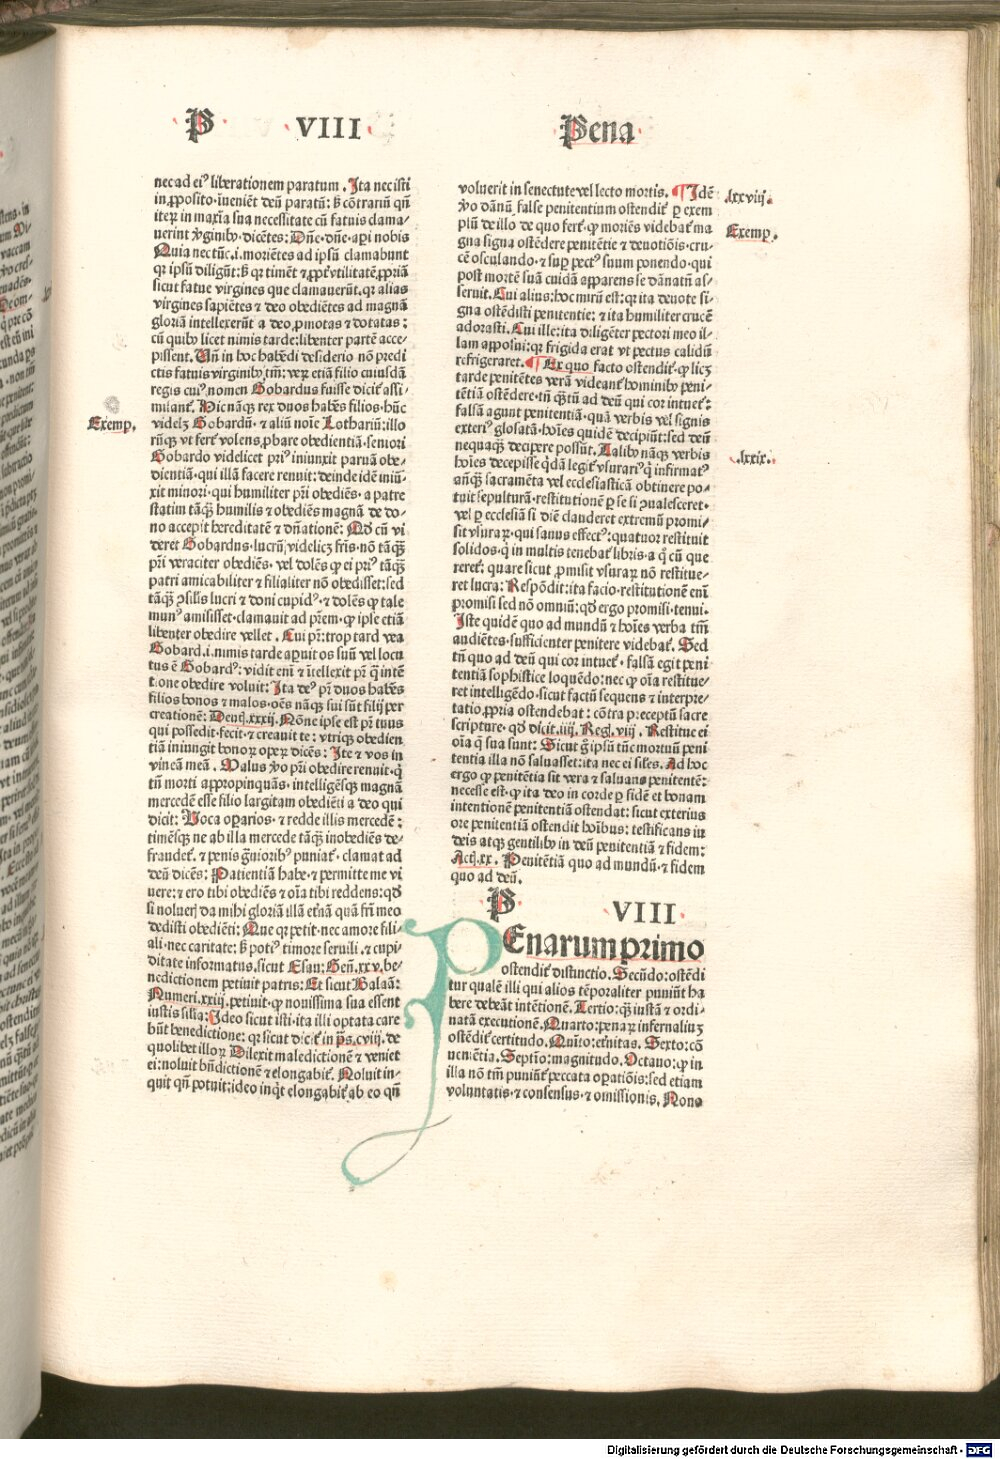 P VIII Pena
nec ad eiꝰ liberationem paratum. Ita nec isti
in ꝓposito īueniēt deū paratū: sꝫ cōtrariū qñ
iteꝝ in maxīa sua necessitate cū fatuis clama-
uerint ꝟginibꝰ dicētes: Dñe dñe aperi nobis
Quia nec tūc .i. moriētes ad ipsū clamabunt
qꝛ ipsū diligūt: sꝫ qꝛ timēt ⁊ ꝓpt̄ vtilitatē ꝓpriā
sicut fatue virgines que clamauerūt. qꝛ alias
virgines sapiētes ⁊ deo obediētes ad magnā
gloriā intellexerūt a deo ꝓmotas ⁊ dotatas:
cū quibꝰ licet nimis tarde: libenter partē acce-
pissent. Uñ in hoc habēdi desiderio nō predi
ctis fatuis virginibꝰ tm̄: veꝝ etiā filio cuiusdā
regis cuiꝰ nomen Gobardus fuisse dicit̄ assi-
milant̄. Hic nāqꝫ rex duos habēs filios. hūc
Exemp. videlꝫ Gobardū. ⁊ aliū noīe Lothariū: illo
rūqꝫ vt fert̄ volens ꝓbare obedientiā. seniori
Gobardo videlicet priꝰ iniunxit paruā obe-
dientiā. qui illā facere renuit: deinde idē iniū-
xit minori. qui humiliter pr̄i obediēs. a patre
statim tāqꝫ humilis ⁊ obediēs magnā de do-
no accepit hereditatē ⁊ dn̄ationē: Qd̄ cū vi
deret Gobardus. lucrū videlicꝫ fr̄is. nō tāqꝫ
pr̄i veraciter obediēs. vel dolēs ꝙ ei priꝰ tāqꝫ
patri amicabiliter ⁊ filialiter nō obedisset: sed
tāqꝫ ꝯsilis lucri ⁊ doni cupidꝰ. ⁊ dolēs ꝙ tale
munꝰ amisisset. clamauit ad pr̄em. ꝙ ipse etiā
libenter obedire vellet. Cui pr̄: trop tard vea
Gobard .i. nimis tarde aꝑuit os suū vel locu
tus ē Gobardꝰ: vidit eni ⁊ ītellexit pr̄ q̄ intē
tione obedire voluit: Ita deꝰ pr̄ duos habēs
filios bonos ⁊ malos. oēs nāqꝫ sui sūt filij per
creationē: Deut̄. xxxij. Nōne ipse est pr̄ tuus
qui possedit. fecit. ⁊ creauit te: vtriqꝫ obedien
tiā iniungit bonoꝝ opeꝝ dicēs: Ite ⁊ vos in
vineā meā. Malus ꝟo pr̄i obedire renuit. q̇
tn̄ morti appropinquās. intelligēsqꝫ magnā
mercedē esse filio largitam obediēti a deo qui
dicit: Uoca operarios. ⁊ redde illis mercedē:
timēsqꝫ ne ab illa mercede tāqꝫ inobediēs de-
fraudet̄. ⁊ penis gꝛauioribꝰ puniat̄. clamat ad
deū dicēs: Patientiā habe. ⁊ permitte me vi
uere: ⁊ ero tibi obediēs ⁊ oīa tibi reddens: qd̄
si nolueꝝ da mihi gloriā illā et̄nā quā fr̄i meo
dedisti obediēti: Que qꝛ petit. nec amore fili-
ali. nec caritate: sꝫ potiꝰ timore seruili. ⁊ cupi
ditate informatus. sicut Esau: Geñ. xxv. be-
nedictionem petiuit patris: Et sicut Balaā:
Numeri. xxiij. petiuit. ꝙ nouissima sua essent
iustis silia: Ideo sicut isti. ita illi optata care
būt benedictione: qꝛ sicut dicit̄ in ps̄. cviij. de
quolibet illoꝝ Dilexit maledictionē ⁊ veniet
ei: noluit bn̄dictionē ⁊ elongabit̄. Noluit in-
quit qñ potuit: ideo inqt̄ elongabit̄ ab eo qñ
voluerit in senectute vel lecto mortis. ¶ Idē .lxxviij.
ꝟo dānū false penitentium ostendit̄ ꝑ exem
plū de illo de quo fert̄. ꝙ moriēs videbat̄ ma Exemp.
gna signa ostēdere penitētie ⁊ deuotiōis. cru-
cē osculando. ⁊ suꝑ pectꝰ suum ponendo. qui
post mortē suā cuidā apparens se dānatū as-
seruit. Cui alius: hoc mirū est: qꝛ ita deuote si-
gna ostēdisti penitentie: ⁊ ita humiliter crucē
adorasti. Cui ille: ita diligēter pectori meo il-
lam apposui: qꝛ frigida erat vt pectus calidū
refrigeraret. ¶ Ex quo facto ostendit̄. ꝙ licꝫ
tarde penitētes verā videant̄ hominibꝰ peni-
tētiā ostēdere. tn̄ qꝫtū ad deū qui cor intuet̄:
falsā agunt penitentiā. quā verbis vel signis
exteriꝰ glosatā. hoīes quidē decipiūt: sed deū
nequaqꝫ decipere possūt. Talibꝰ nāqꝫ verbis .lxxix.
hoīes decepisse q̄dā legit̄ vsurariꝰ q̇ infirmatꝰ
añqꝫ sacramēta vel ecclesiasticā obtinere po-
tuit sepulturā. restitutionē ꝑ se si ꝯualesceret.
vel ꝑ ecclesiā si diē clauderet extremū promi-
sit vsuraꝝ. qui sanus effectꝰ: quatuor restituit
solidos. q̇ in multis tenebat̄ libris. a q̇ cū que
reret̄: quare sicut ꝓmisit vsuraꝝ nō restitue-
ret lucra: Respōdit: ita facio. restitutionē enī
promisi sed nō omniū: qd̄ ergo promisi. tenui.
Iste quidē quo ad mundū ⁊ hoīes verba tm̄
audiētes. sufficienter penitere videbat̄. Sed
tn̄ quo ad deū qui cor intuet̄. falsā egit peni
tentiā sophistice loquēdo: nec ꝙ oīa restitue-
ret intelligēdo. sicut factū sequens ⁊ interpre-
tatio ꝓpria ostendebat: cōtra p̄ceptū sacre
scripture. qd̄ dicit. iiij. Reḡ. viij. Restitue ei
oīa q̄ sua sunt: Sicut gͦ ipsū tūc mortuū peni
tentia illa nō saluasset: ita nec ei siles. Ad hoc
ergo ꝙ penitētia sit vera ⁊ saluans penitentē:
necesse est. ꝙ ita deo in corde ꝑ fidē et bonam
intentionē penitentiā ostendat: sicut exterius
ore penitentiā ostendit hoībus: testificans iu
deis atqꝫ gentilibꝰ in deū penitentiā ⁊ fidem:
Act̄. xx. Penitētiā quo ad mundū. ⁊ fidem
quo ad deū.
P VIII
PEnarum primo
ostendit̄ distinctio. Secūdo: ostēdi
tur qualē illi qui alios tēporaliter puniūt ha
bere debeāt intētionē. Tertio: qꝫ iustā ⁊ ordi-
natā executionē. Quarto: penaꝝ infernaliuꝫ
ostēdit̄ certitudo. Quīto: et̄nitas. Sexto: cō
ueniētia. Septīo: magnitudo. Octauo: ꝙ in
illa nō tm̄ puniūt̄ peccata operatiōis: sed etiam
voluntatis. ⁊ consensus. ⁊ omissionis. Nono
Digitalisierung gefördert durch die Deutsche Forschungsgemeinschaft - DFG